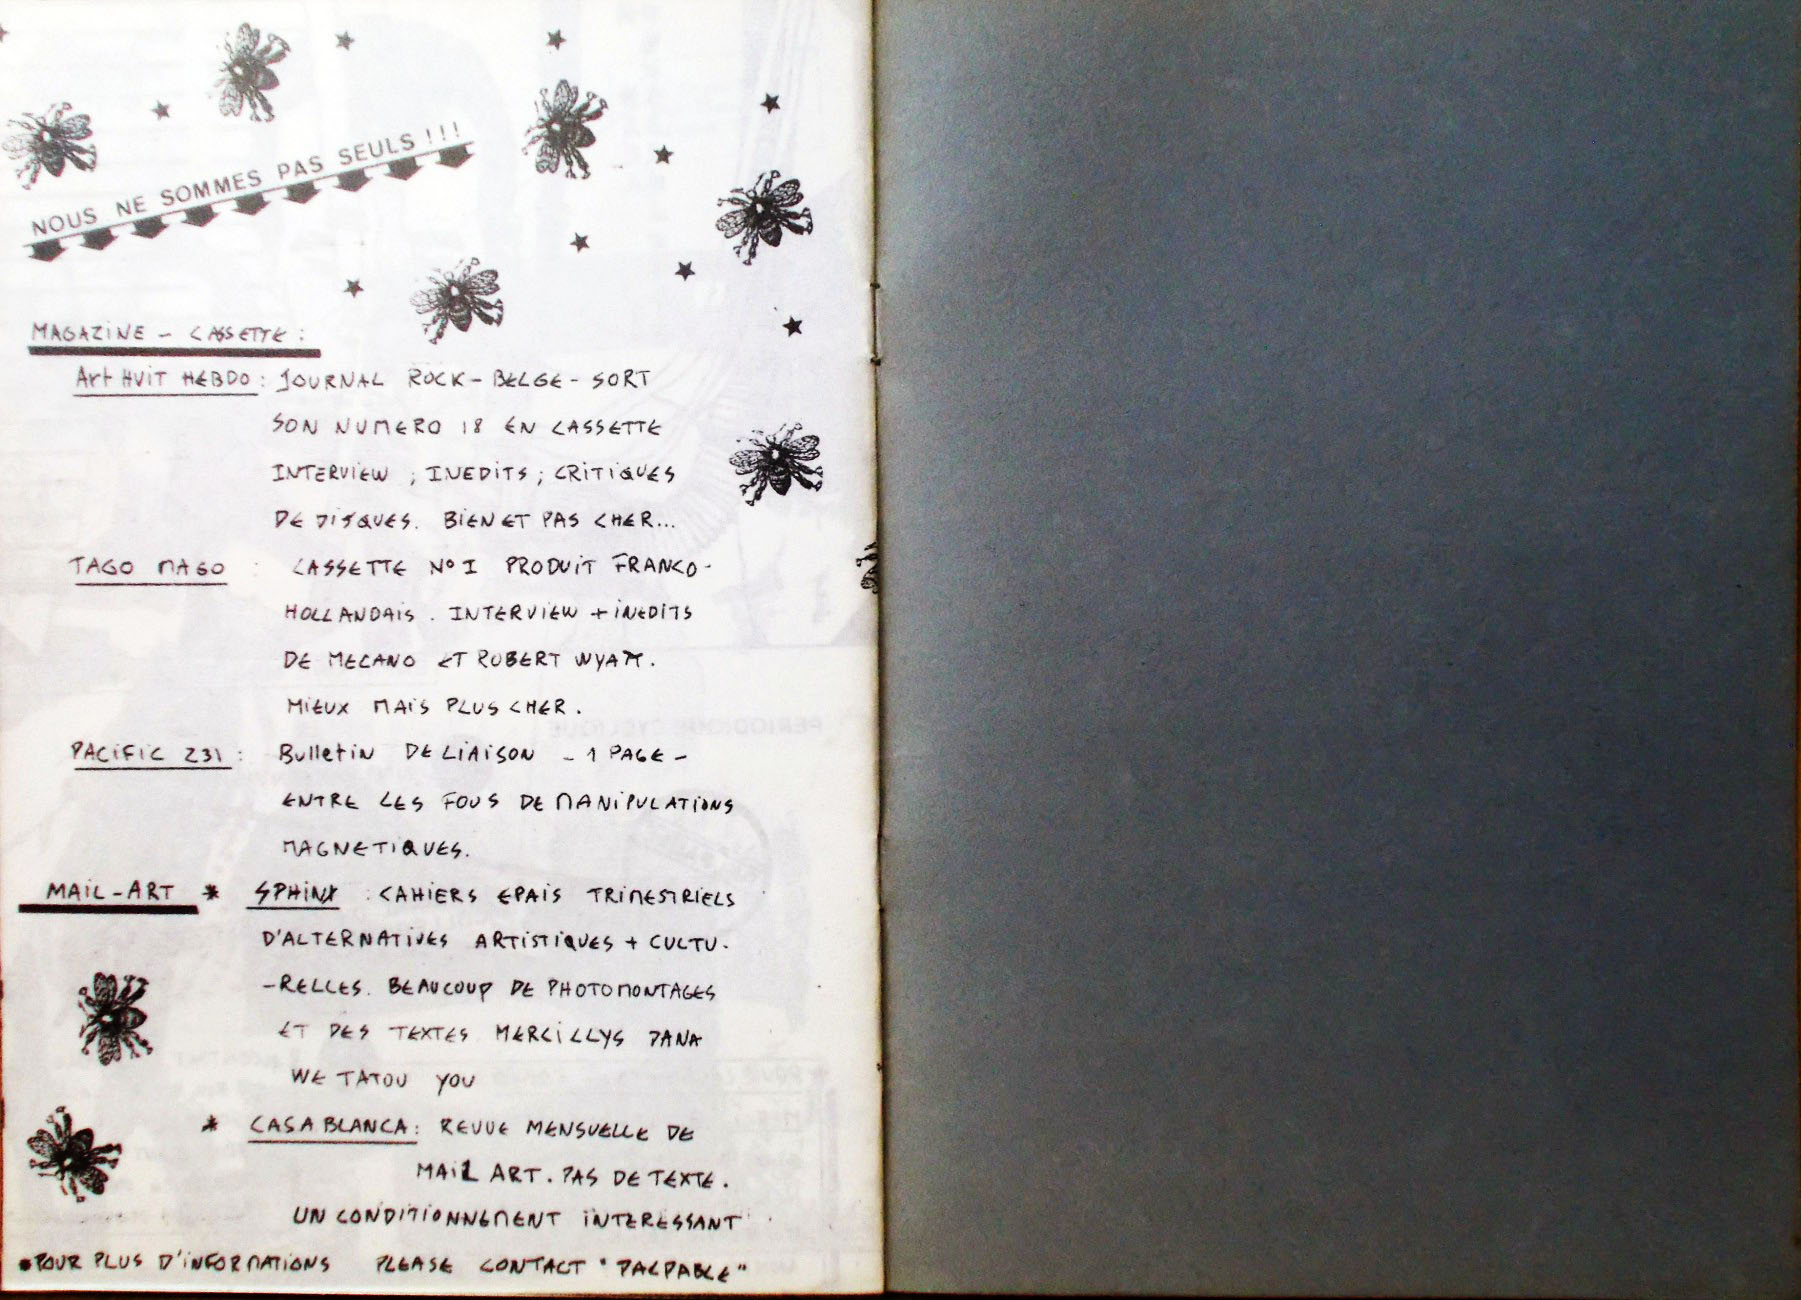 NOUS NE SOMMES PAS SEULS !!!
MAGAZINE - CASSETTE :
Art HUIT HEBDO : JOURNAL ROCK - BELGE - SORT
SON NUMERO 18 EN CASSETTE
INTERVIEW ; INEDITS ; CRITIQUES
DE DISQUES. BIEN ET PAS CHER...
TAGO MAGO : CASSETTE N° I PRODUIT FRANCO-
HOLLANDAIS . INTERVIEW + INEDITS
DE MECANO ET ROBERT WYATT.
MIEUX MAIS PLUS CHER .
PACIFIC 231 : Bulletin DE LIAISON - 1 PAGE -
ENTRE LES FOUS DE MANIPULATIONS
MAGNETIQUES.
MAIL-ART * SPHINX : CAHIERS EPAIS TRIMESTRIELS
D'ALTERNATIVES ARTISTIQUES + CULTU-
-RELLES. BEAUCOUP DE PHOTOMONTAGES
ET DES TEXTES DANA
WE TATOU YOU
* CASABLANCA : REVUE MENSUELLE DE
MAIL ART . PAS DE TEXTE .
UN CONDITIONNEMENT INTERESSANT
POUR PLUS D'INFORMATIONS PLEASE CONTACT "PALPABLE"